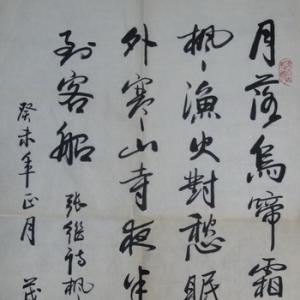 月落烏啼霜
楓漁火對愁眠
外寒山寺夜半
到客船
張繼詩楓
癸未年正月